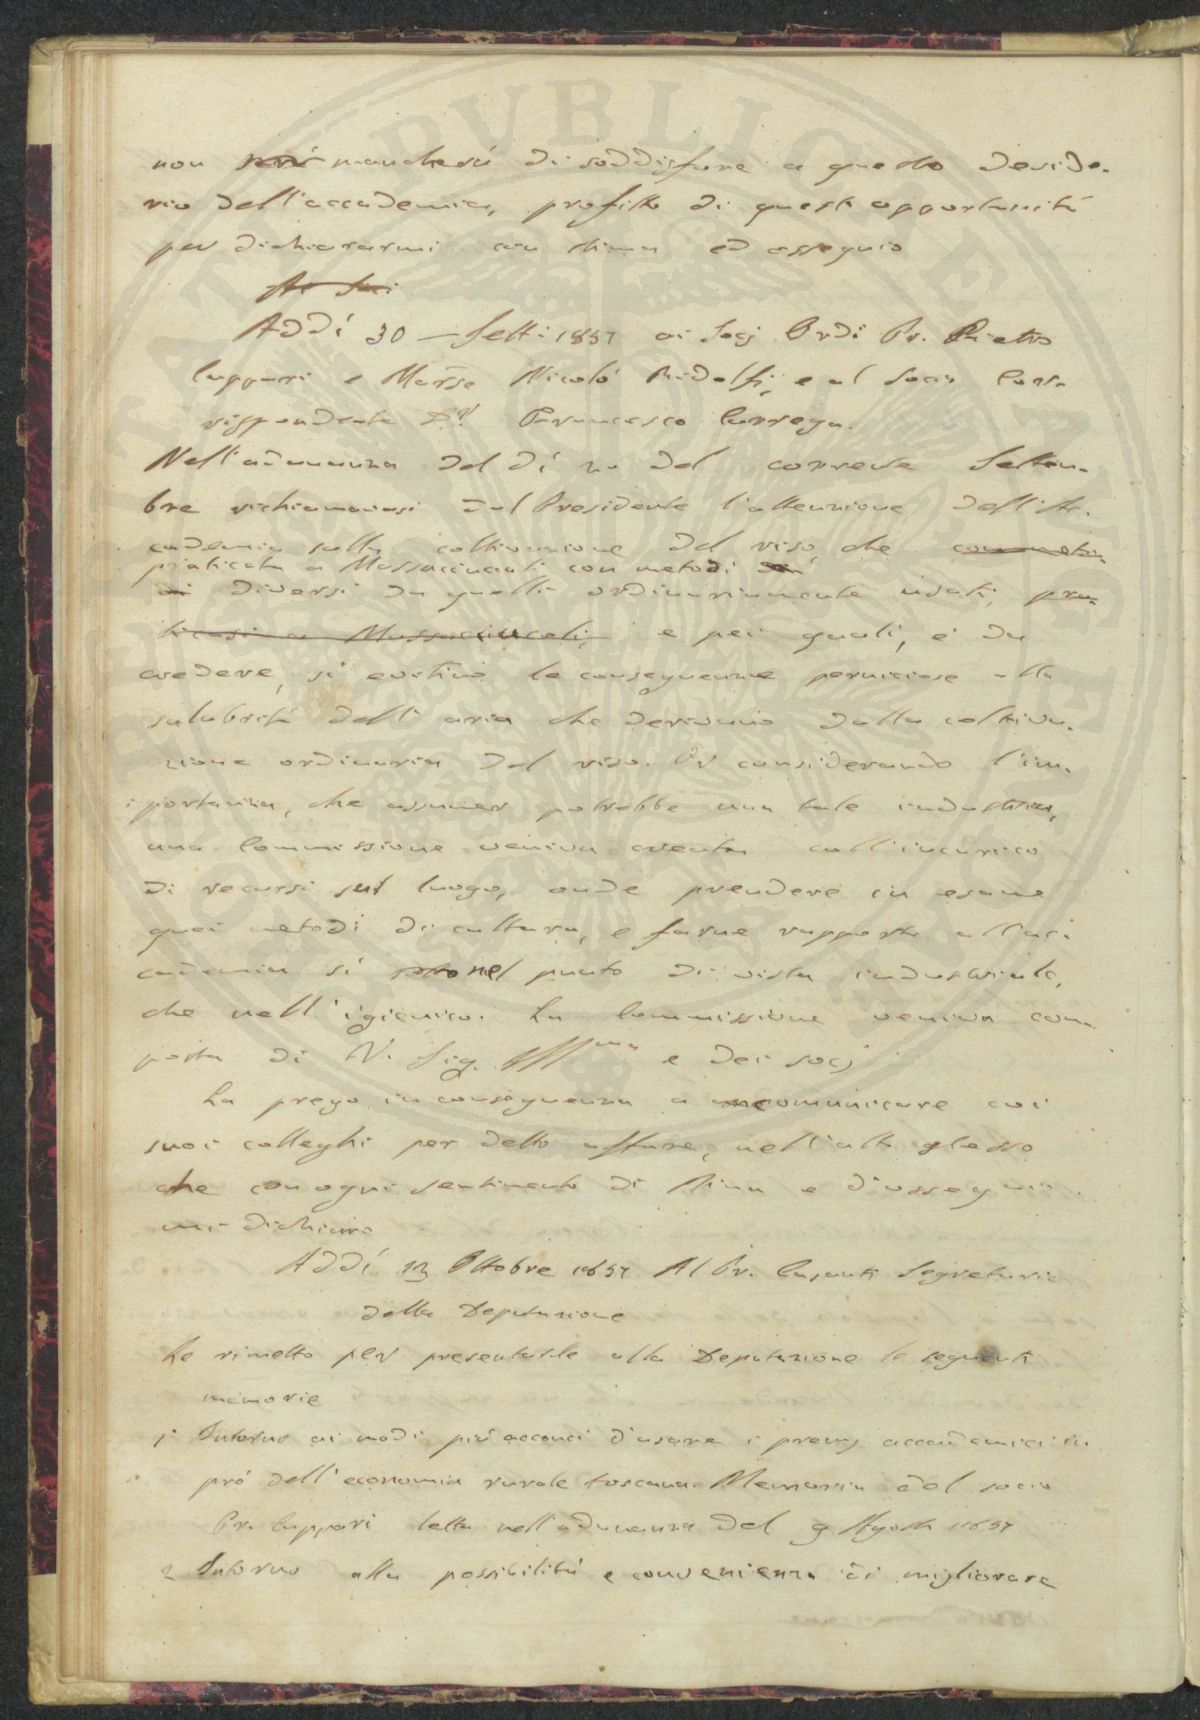 non mancherà di soddisfare a questo deside-
rio dell'accademia, profitto di questa opportunità
per dichiararmi con stima ed ossequio
Ai Soci
Addí 30 - Sett. 1857 ai Socj Ordi Pr. Pietro
Cuppari e March.se Nicoló Ridolfi, e al Socio Corr-
rispondente D.r Francesco Carrega.
Nell'adunanza del dí 20 del corrente Settem-
bre richiamavasi dal Presidente l'attenzione dell'Ac-
cademia sulla coltivazione del riso, che con meto-
praticata a Massaciuccoli con metodi
di diversi da quelli ordinariamente usati, pra-
ticasi a Massaciuccoli, e pei quali, é da
credere, si evitino le conseguenze perniciose alla
salubritá dell'aria che derivano dalla coltiva-
zione ordinaria del riso. Or considerando l'im-
portanza, che assumer potrebbe una tale industria,
una Commissione veniva creata coll'incarico
di recarsi sul luogo, onde prendere in esame
quei metodi di cultura, e farne rapporto all'ac-
cademia sí nel punto di vista industriale,
che nell'igienico. La Commissione veniva com-
posta di V. Sig. Ill.ma e dei socj
La prego in conseguenza a comunicare coi
suoi colleghi per detto affare, nell'atto stesso
che con ogni sentimento di stima e d'ossequio
mi dichiaro
Addí 12 Ottobre 1857 Al Pr. Casanti Segretario
della Deputazione
Le rimetto per presentarle alla Deputazione le seguenti
memorie
1° Intorno ai modi piú acconci d'usare i premj accademici in
pró dell'economia rurale toscana. Memoria del socio
Pr. Cuppari letta nell'adunanza del 9 Agosto 1857
2 Intorno alla possibilitá e convenienza di migliorare